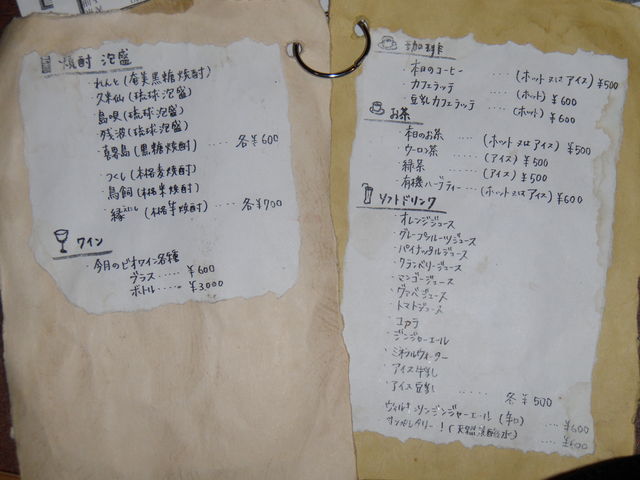 焼酎 泡盛
・れんと(奄美黒糖焼酎)
・久米仙(琉球泡盛)
・島唄(琉球泡盛)
・残波(琉球泡盛)
・喜界島(黒糖焼酎) ‥‥ 各¥600
・つくし(本格麦焼酎)
・鳥飼(本格米焼酎)
・縁(本格芋焼酎) ‥‥ 各¥700
ワイン
・今月のビオワイン各種
グラス ‥‥‥ ¥600
ボトル ‥‥‥ ¥3,000
珈琲
・本日のコーヒー ‥‥(ホット又はアイス)¥500
・カフェラッテ ‥‥(ホット)¥600
・豆乳カフェラッテ ‥‥(ホット)¥600
お茶
・本日のお茶 ‥‥(ホット又はアイス)¥500
・ウーロン茶 ‥‥‥(アイス)¥500
・緑茶 ‥‥‥(アイス)¥500
・有機ハーブティー ‥‥(ホット又はアイス)¥600
ソフトドリンク
・オレンジジュース
・グレープフルーツジュース
・パイナップルジュース
・クランベリージュース
・マンゴージュース
・グァバジュース
・トマトジュース
・コカコーラ
・ジンジャーエール
・ミネラルウォーター
・アイス牛乳
・アイス豆乳 ‥‥‥ 各¥500
・ウィルキンソンジンジャーエール(辛口) ‥‥ ¥600
・サンペレグリーノ ‥‥ ¥600